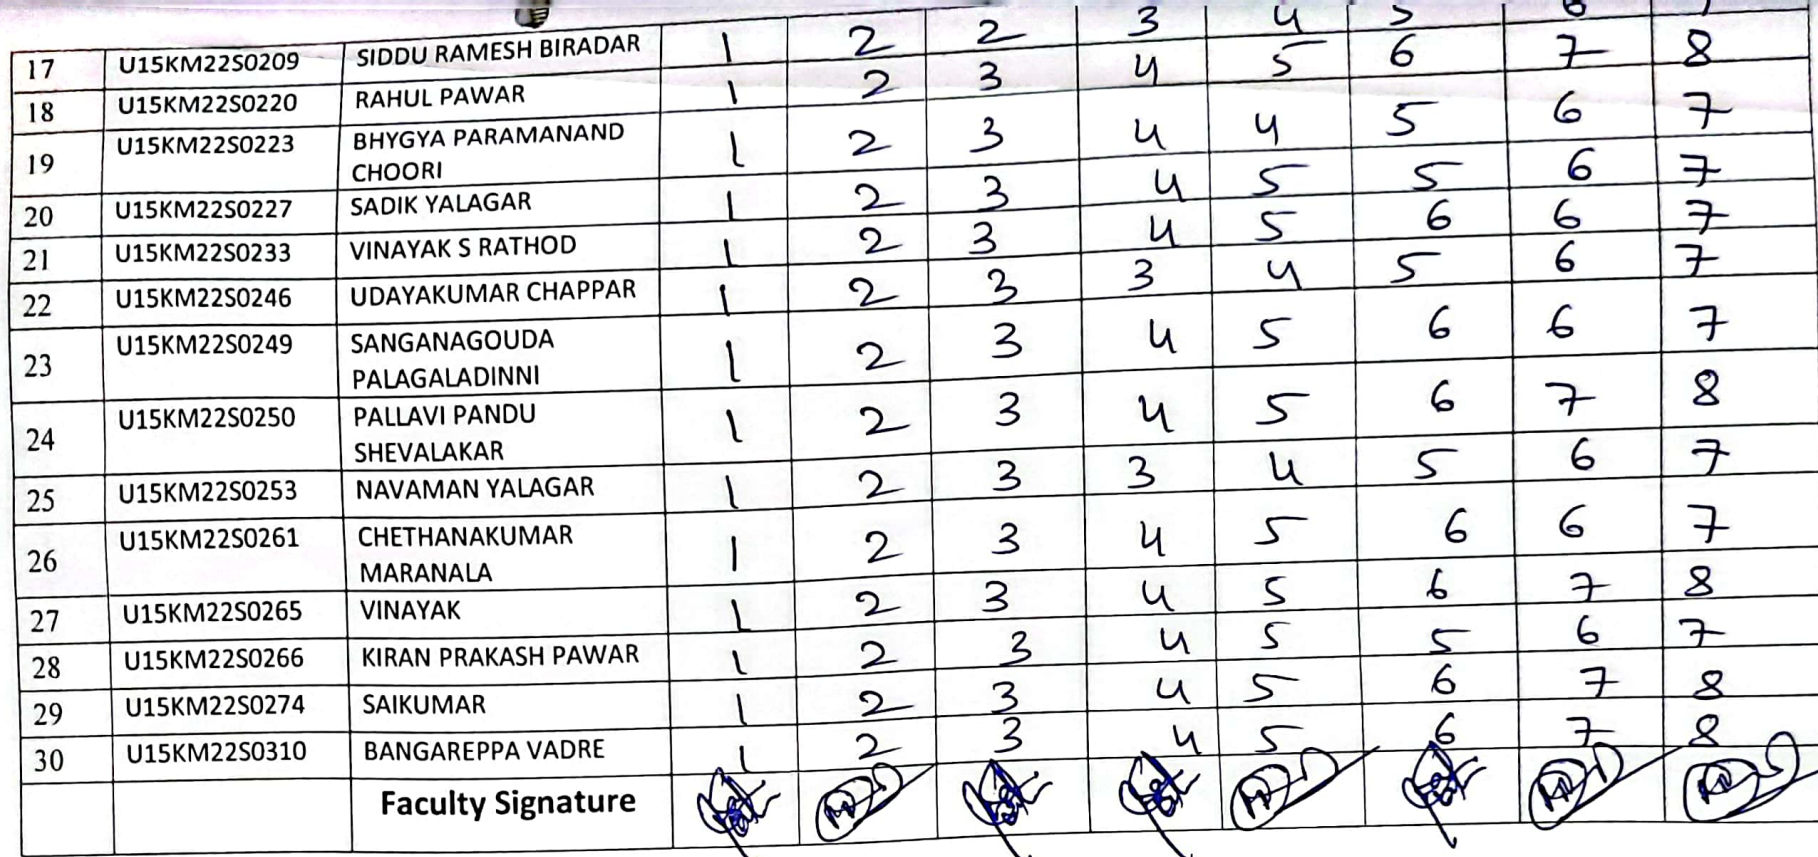 17 U15KM22S0209 SIDDU RAMESH BIRADAR 1 2 2 3 4 5 6
18 U15KM22S0220 RAHUL PAWAR 1 2 3 4 5 6 7 8
19 U15KM22S0223 BHYGYA PARAMANAND
CHOORI 1 2 3 4 4 5 6 7
20 U15KM22S0227 SADIK YALAGAR 1 2 3 4 5 5 6 7
21 U15KM22S0233 VINAYAK S RATHOD 1 2 3 4 5 6 6 7
22 U15KM22S0246 UDAYAKUMAR CHAPPAR 1 2 3 3 4 5 6 7
23 U15KM22S0249 SANGANAGOUDA
PALAGALADINNI 1 2 3 4 5 6 6 7
24 U15KM22S0250 PALLAVI PANDU
SHEVALAKAR 1 2 3 4 5 6 7 8
25 U15KM22S0253 NAVAMAN YALAGAR 1 2 3 3 4 5 6 7
26 U15KM22S0261 CHETHANAKUMAR
MARANALA 1 2 3 4 5 6 6 7
27 U15KM22S0265 VINAYAK 1 2 3 4 5 6 7 8
28 U15KM22S0266 KIRAN PRAKASH PAWAR 1 2 3 4 5 5 6 7
29 U15KM22S0274 SAIKUMAR 1 2 3 4 5 6 7 8
30 U15KM22S0310 BANGAREPPA VADRE 1 2 3 4 5 6 7 8
Faculty Signature